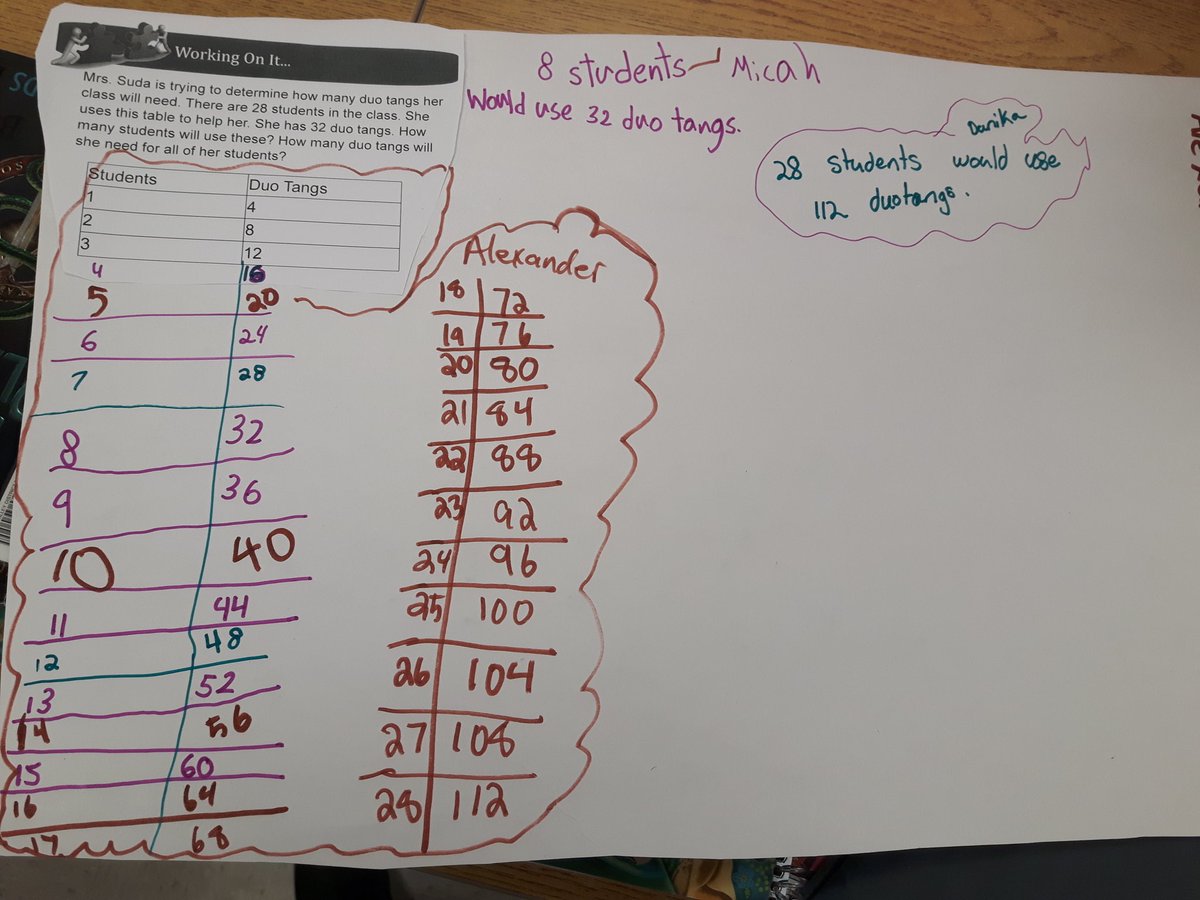 Working On It...
Mrs. Suda is trying to determine how many duo tangs her
class will need. There are 28 students in the class. She
uses this table to help her. She has 32 duo tangs. How
many students will use these? How many duo tangs will
she need for all of her students?
Students Duo Tangs
1 4
2 8
3 12
4 16
5 20
6 24
7 28
8 32
9 36
10 40
11 44
12 48
13 52
14 56
15 60
16 64
17 68
Alexander
18 72
19 76
20 80
21 84
22 88
23 92
24 96
25 100
26 104
27 108
28 112
8 students Micah
Would use 32 duo tangs.
Danika
28 students would use
112 duotangs.